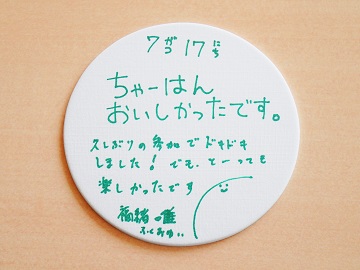 7がつ17にち
ちゃーはん
おいしかったです。
久しぶりの参加でドキドキ
しました！でも、とーっても
楽しかったです
福緒 唯
ふくおゆい